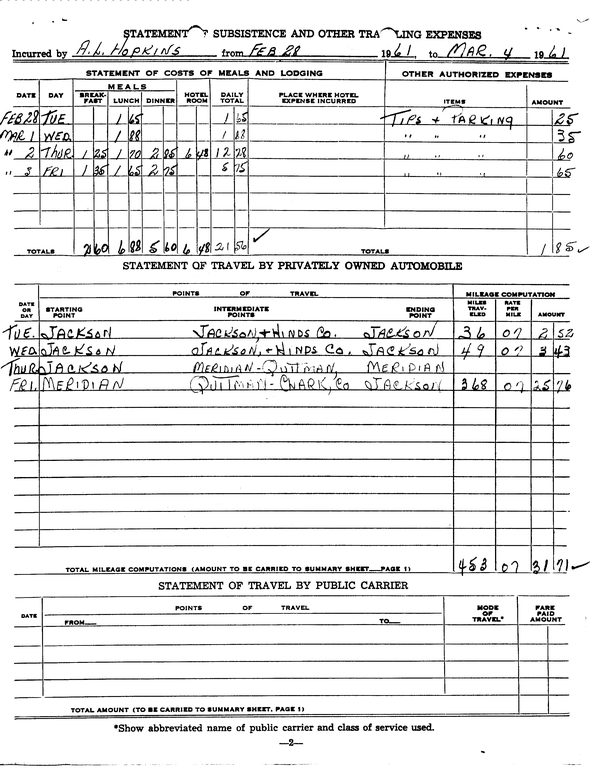 STATEMENT OF SUBSISTENCE AND OTHER TRA LING EXPENSES
Incurred by A.L. HOPKINS from FEB 28 1961, to MAR. 4 1961
STATEMENT OF COSTS OF MEALS AND LODGING OTHER AUTHORIZED EXPENSES
DATE DAY MEALS BREAK-FAST LUNCH DINNER HOTEL ROOM DAILY TOTAL PLACE WHERE HOTEL EXPENSE INCURRED ITEMS AMOUNT
FEB 28 TUE. 1 65 1 65 TIPS + PARKING 25
MAR 1 WED. 1 88 1 88 " " " 35
" 2 THUR. 1 25 1 70 2 85 6 48 12 28 " " " 60
" 3 FRI 1 35 1 65 2 75 5 75 " " " 65
TOTALS 2 60 6 88 5 60 6 48 21 56 ✓ TOTALS 1 85 ✓
STATEMENT OF TRAVEL BY PRIVATELY OWNED AUTOMOBILE
POINTS OF TRAVEL MILEAGE COMPUTATION
DATE OR DAY STARTING POINT INTERMEDIATE POINTS ENDING POINT MILES TRAV-ELED RATE PER MILE AMOUNT
TUE. JACKSON JACKSON, + HINDS CO. JACKSON 36 07 2 52
WED. JACKSON JACKSON, + HINDS CO. JACKSON 49 07 3 43
THUR. JACKSON MERIDIAN - QUITMAN, MERIDIAN
FRI. MERIDIAN QUITMAN - CLARK, CO JACKSON 368 07 25 76
TOTAL MILEAGE COMPUTATIONS (AMOUNT TO BE CARRIED TO SUMMARY SHEET—PAGE 1) 453 07 31 71 ✓
STATEMENT OF TRAVEL BY PUBLIC CARRIER
DATE POINTS OF TRAVEL MODE OF TRAVEL* FARE PAID AMOUNT
FROM TO
TOTAL AMOUNT (TO BE CARRIED TO SUMMARY SHEET, PAGE 1)
*Show abbreviated name of public carrier and class of service used.
—2—